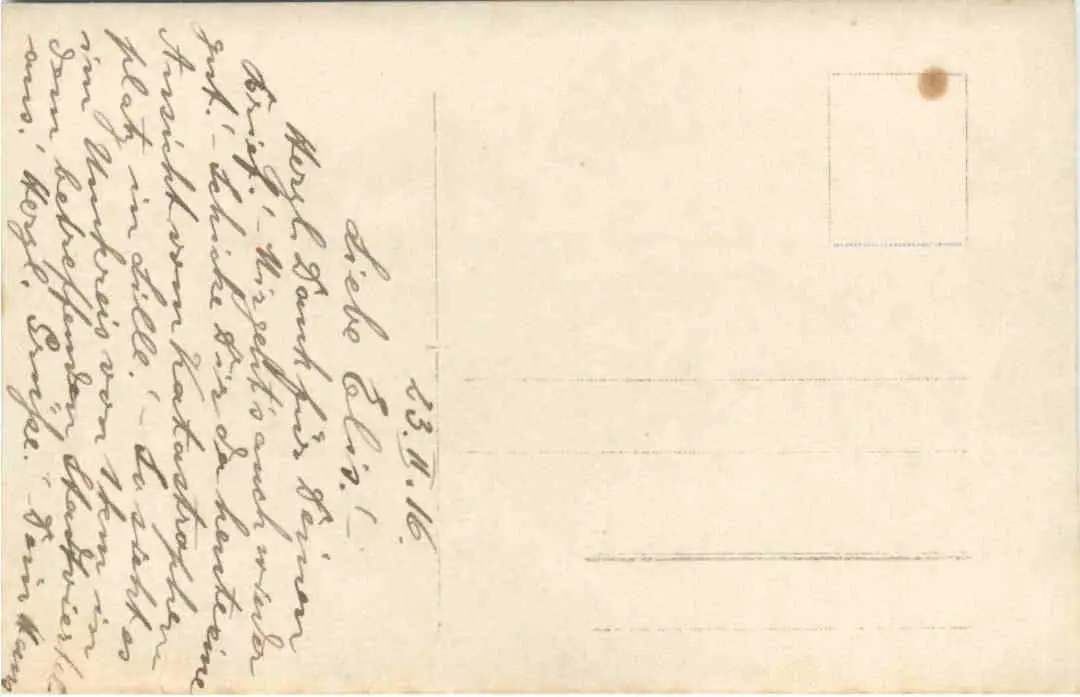 23.II.16.
Liebe Elis! –
Herzl. Dank für Deinen
Brief! – Mir geht's auch wieder
gut! – Schicke Dir da heute eine
Ansicht vom Katastrophen
platz in Lille! – So sieht es
im Umkreis von 1 km in
dem betreffenden Stadtviertel
aus! Herzl. Grüße. – Dein Hans